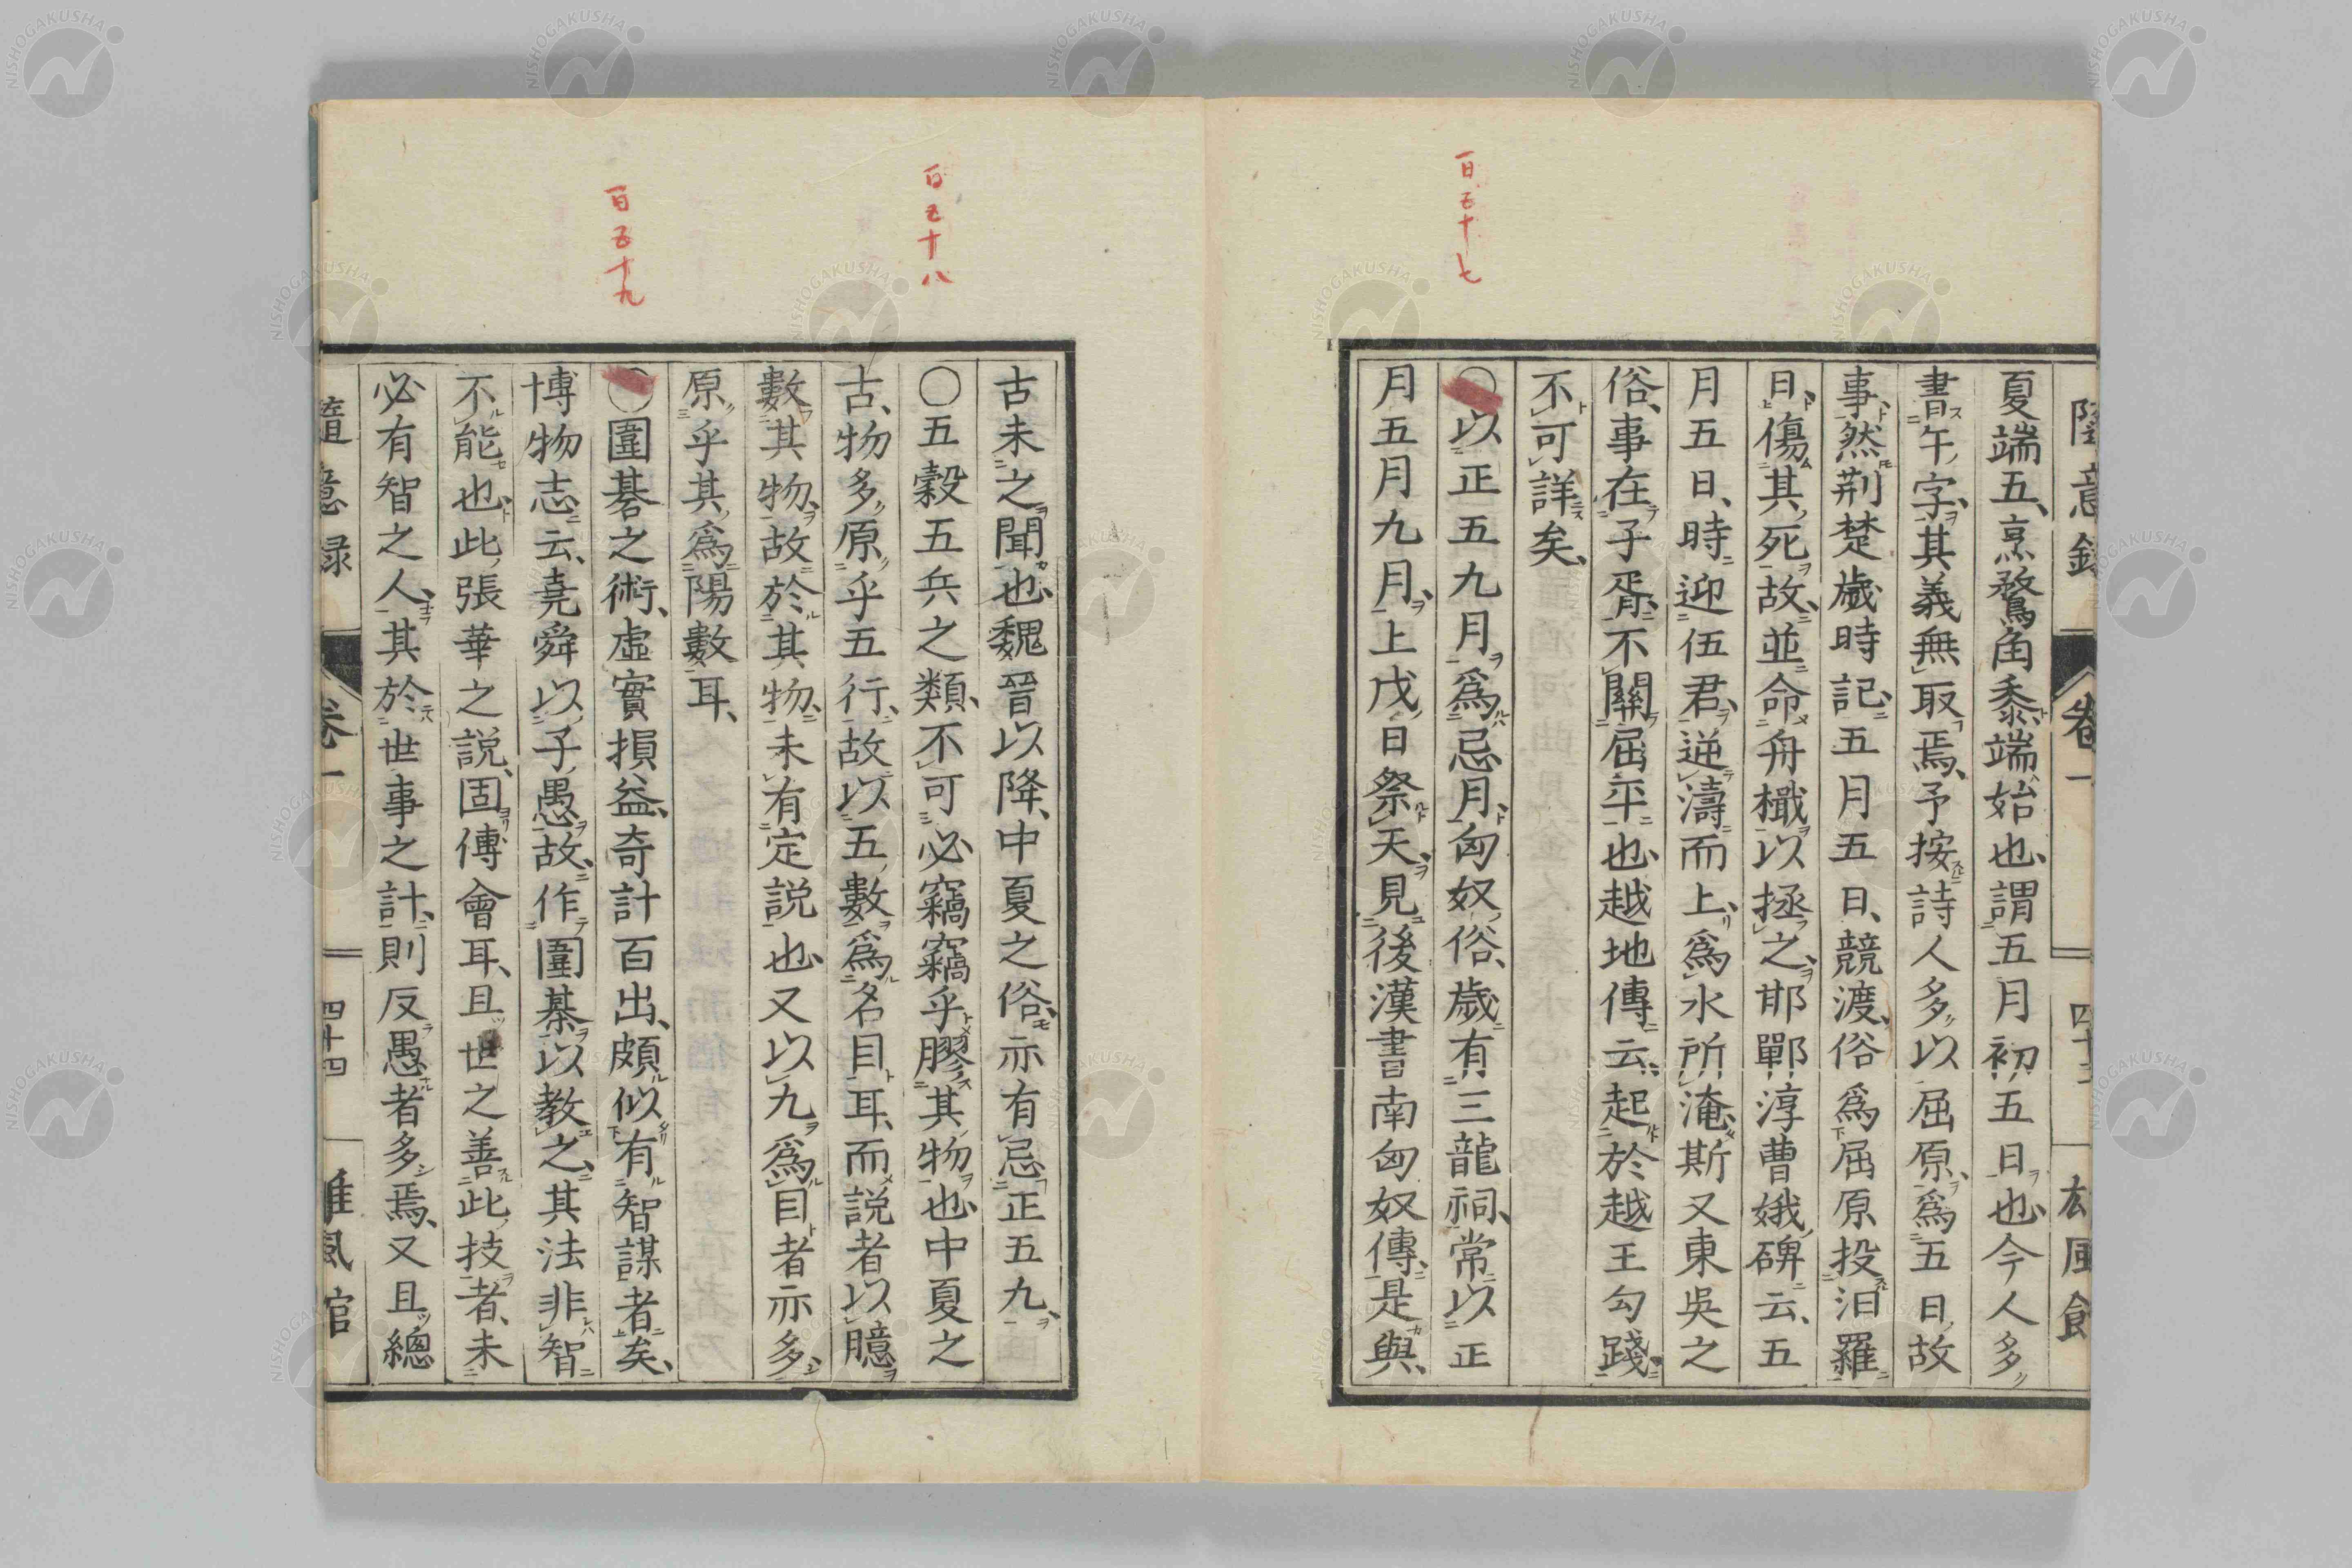 隨意録 卷一 四十三 雄風館
夏端五、烹鶩角黍、端始也、謂五月初五日也、今人多
書午字、其義無取焉、予按詩人多以屈原爲五日故
事、然荆楚歳時記、五月五日、競渡、俗爲屈原投汨羅
日、傷其死故、並命舟檝以拯之、邯鄲淳曹娥碑云、五
月五日、時迎伍君、逆濤而上、爲水所淹、斯又東吳之
俗、事在子胥、不關屈平也、越地傳云、起於越王勾踐、
不可詳矣、
百五十七
〇以正五九月爲忌月、匈奴俗、歳有三龍祠、常以正
月五月九月、上戊日祭天、見後漢書南匈奴傳、是與、
古未之聞也、魏晉以降、中夏之俗、亦有忌正五九、
百五十八
〇五穀五兵之類、不可必竊竊乎膠其物也、中夏之
古、物多原乎五行、故以五數爲名目耳、而説者以臆
數其物、故於其物、未有定説也、又以九爲目者亦多、
原乎其爲陽數耳、
百五十九
〇圍碁之術、虛實損益、奇計百出、頗似有智謀者矣、
博物志云、堯舜以子愚故、作圍棊以教之、其法非智
不能也、此張華之説、固傅會耳、且世之善此技者、未
必有智之人、其於世事之計、則反愚者多焉、又且總
隨意録 卷一 四十四 雄風館
NISHOGAKUSHA